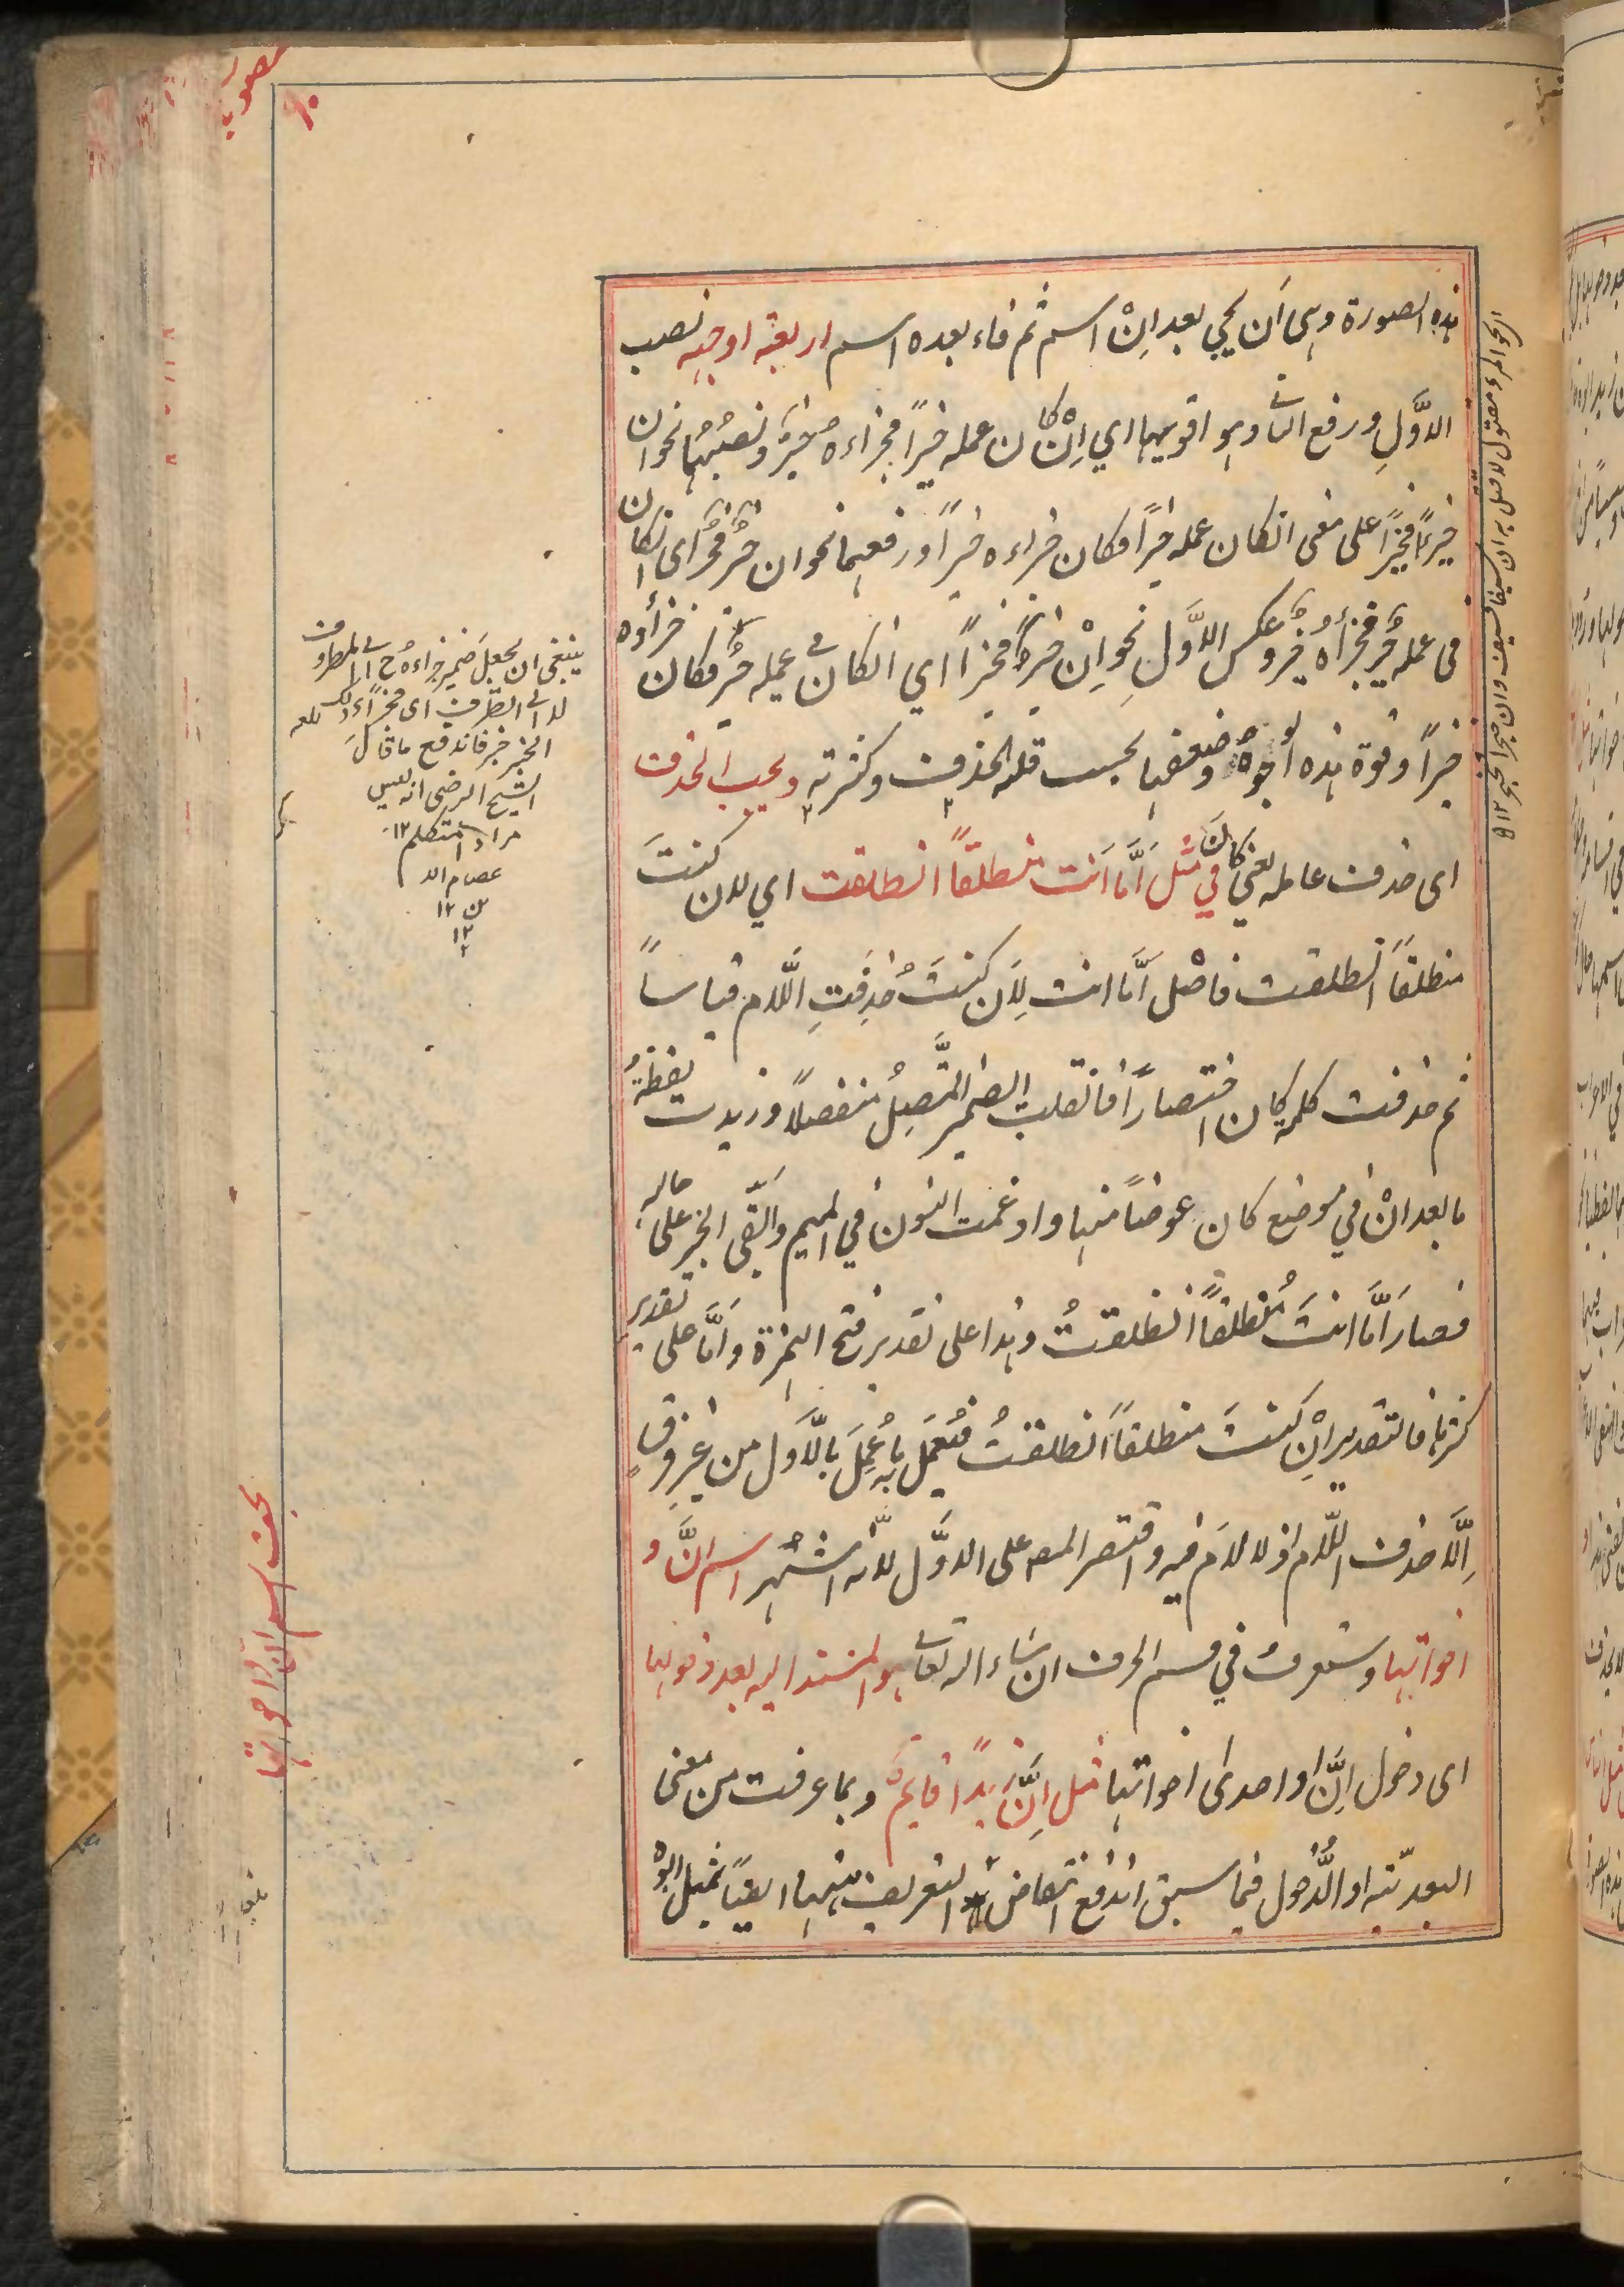 هذه الصورة وهى أن يجي بعد اِنْ اسم ثم فاء بعده اسم اربعة اوجه نصب
الاوَّلِ ورفع الثانى وهو اقويها اي اِنْ كان عمله خيرًا فجزاءه خيرٌ ونصبُهُما نحو ان
خيرًا فخيرًا على معنى انكان عمله خيرًا فكان جزاءه خيرًا ورفعهما نحو ان خيرٌ فخيرٌ اى انكان
فى عمله خيرٌ فجزأه خيرٌ وعكس الاوَّلِ نحو اِنْ خيرٌ فخيرًا اي انكان فى عمله خيرٌ فكان جزأوه
خيرًا وقوة هذه الوجوه وضعفها بحسب قلة الحذف وكثرته ويجب الحذف
اى حذف عامله يعني كان في مثل أمَّا أنت منطلقًا انطلقت اي لان كنتَ
منطلقًا انطلقت فاصْل أمَّا انت لِأن كنتَ حُذِفَتِ اللَّام قياساً
ثم حذفت كلمة كان اختصارًا فانقلب الضمير المتَّصِلُ منفصلاً وزيدت لفظةُ
ما بعد انْ في موضع كان عوضًا منها وادغمت النون في الميم واُبقى الخبر على حاله
فصار أمَّا انتَ مُنطلقًا انطلقتُ وهذا على تقدير فتح الهمزة وأمَّا على تقدير
كسرها فالتقدير اِنْ كنتَ منطلقًا انطلقتُ فعُمِلَ به ما عُمِلَ بالاَوّل من غير فرق
اِلَّا حذف اللّام اذ لا لامَ فيه واقتصر المص على الاوَّل لانّه اشهر اسم اِنَّ و
اخواتها وستعرفُ في قسم الحرف ان شاء الله تعالى هو المسند اليه بعد دخولها
اى دخول اِنَّ او احدى اخواتها مثل اِنَّ زيدًا قايمٌ وبما عرفت من معنى
البعديّة او الدُّخول فيما سبق اندفع انتقاض التعريف ههنا ايضًا بمثل ابوه
ينبغى ان يجعل ضمير جزاءه ح الى المظروف
لا الى الظرف اى فجزاء ذلك
الخير خير فاندفع ما قال
الشيخ الرضى انه ليس
مراد المتكلم ١٢
عصام الد
ين ١٢
١٢
بحث اسم انّ واخواتها